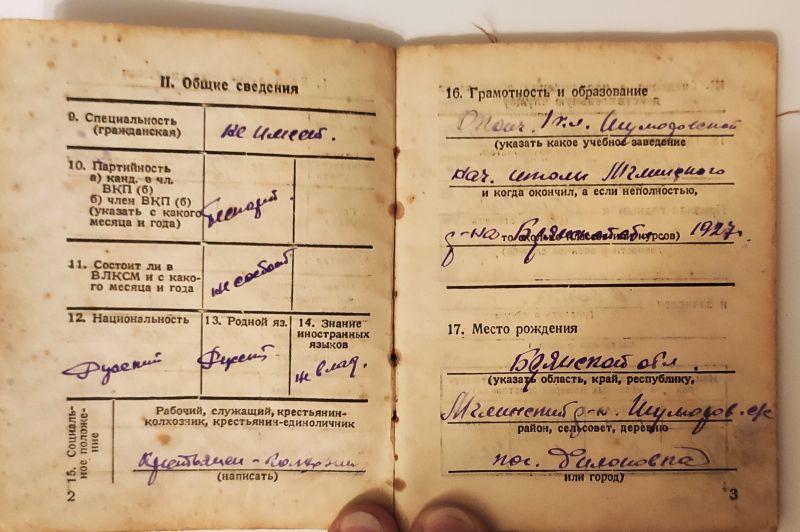 II. Общие сведения
9. Специальность
(гражданская)
не имеет.
10. Партийность
а) канд. в чл.
ВКП (б)
б) член ВКП (б)
(указать с какого
месяца и года)
беспарт.
11. Состоит ли в
ВЛКСМ и с како-
го месяца и года
не состоит
12. Национальность
Русский
13. Родной яз.
Русск.
14. Знание
иностранных
языков
не влад.
15. Социаль-
ное положе-
ние
Рабочий, служащий, крестьянин-
колхозник, крестьянин-единоличник
Крестьянин-колхозник
(написать)
2
16. Грамотность и образование
Оконч. 1 кл. Шумаровской
(указать какое учебное заведение
нач. школы Мглинского
и когда окончил, а если неполностью,
р-на Брянской обл. 1927.
то сколько классов или курсов)
17. Место рождения
Брянской обл.
(указать область, край, республику,
Мглинский р-н. Шумаров. с/с
район, сельсовет, деревню
пос.
или город)
3